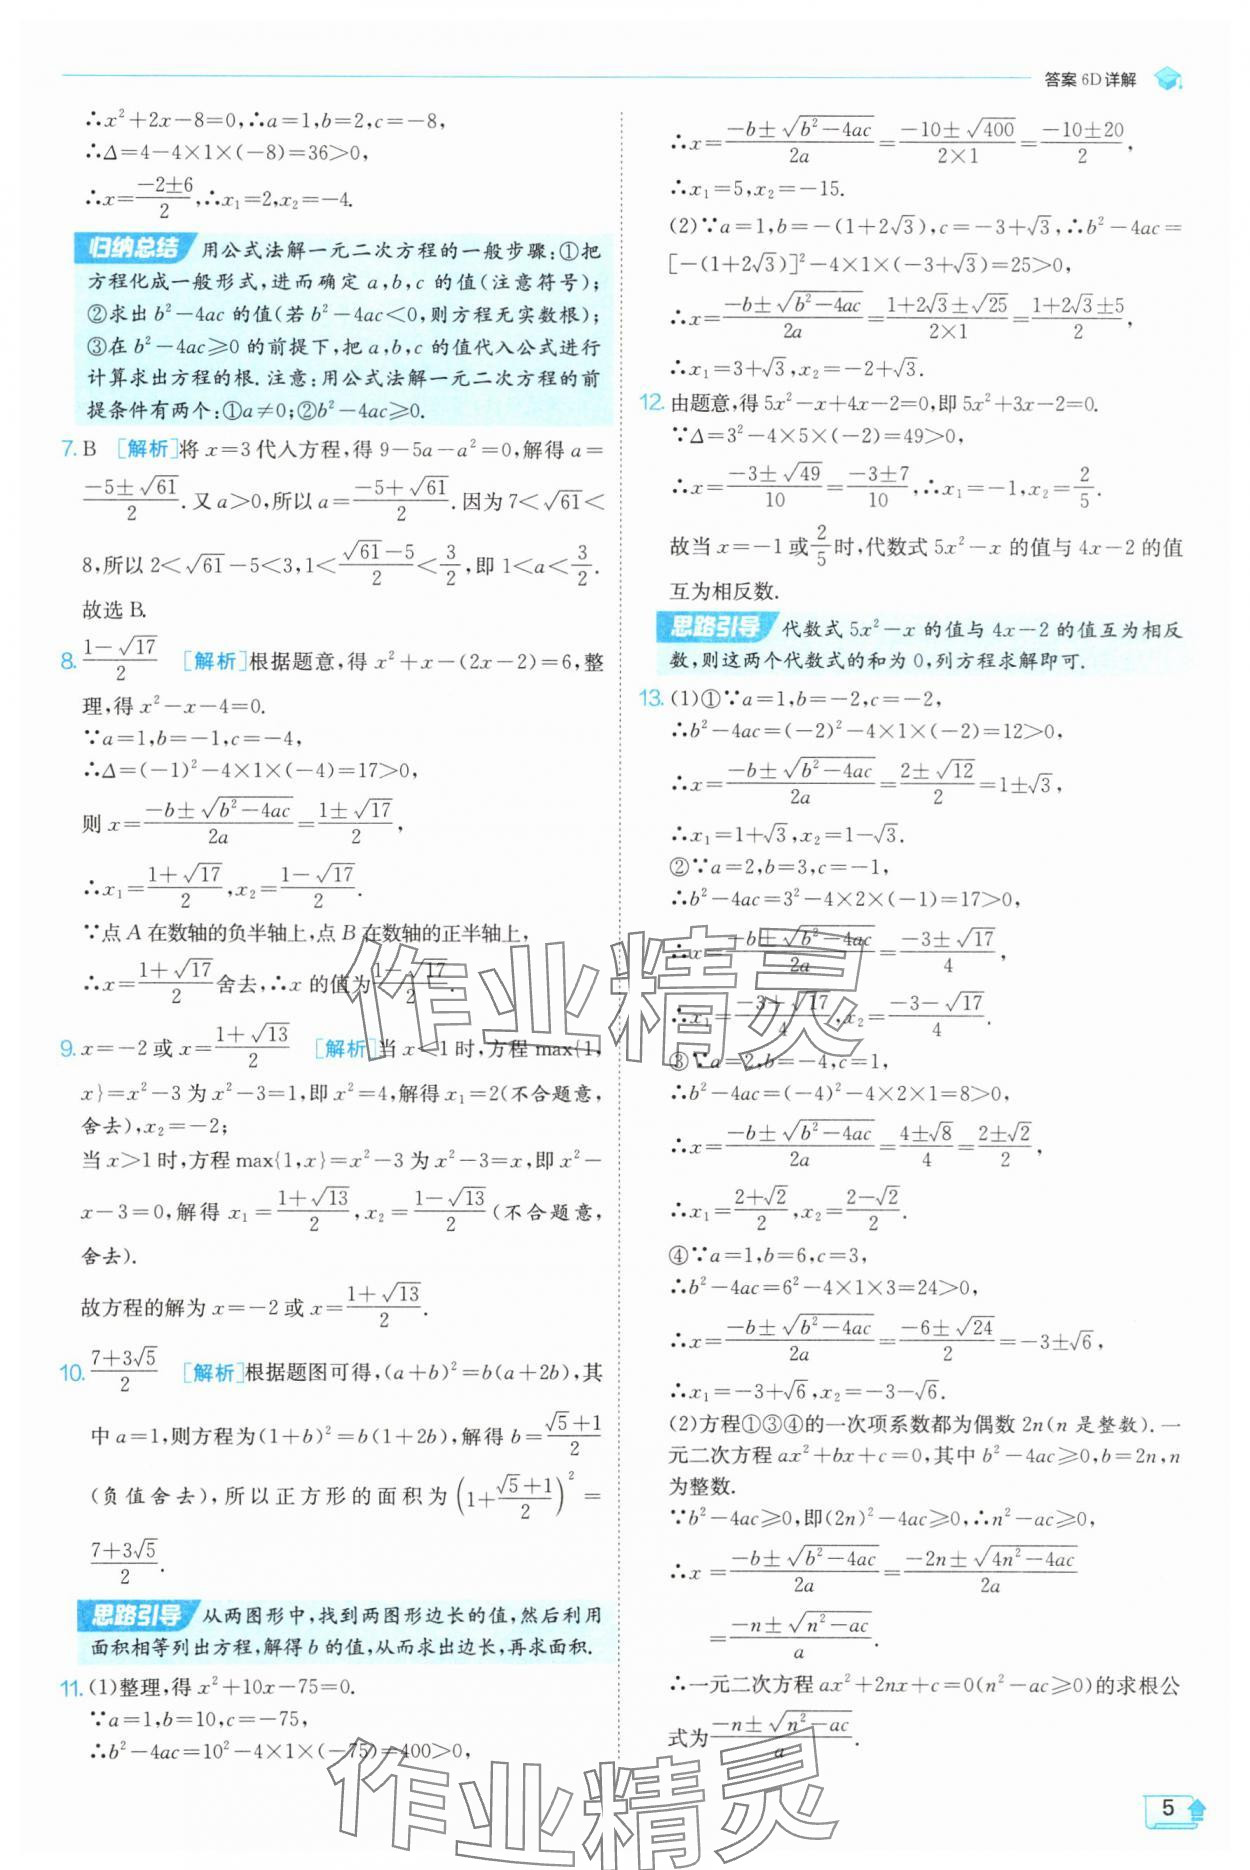 答案 6D 详解
∴x²+2x-8=0,∴a=1,b=2,c=-8,
∴Δ=4-4×1×(-8)=36>0,
∴x=(-2±6)/2,∴x₁=2,x₂=-4.
归纳总结 用公式法解一元二次方程的一般步骤:①把
方程化成一般形式,进而确定 a,b,c 的值(注意符号);
②求出 b²-4ac 的值(若 b²-4ac<0,则方程无实数根);
③在 b²-4ac≥0 的前提下,把 a,b,c 的值代入公式进行
计算求出方程的根. 注意:用公式法解一元二次方程的前
提条件有两个:①a≠0;②b²-4ac≥0.
7. B [解析]将 x=3 代入方程,得 9-5a-a²=0,解得 a=
(-5±√61)/2. 又 a>0,所以 a=(-5+√61)/2. 因为 7<√61<
8,所以 2<√61-5<3,1<(√61-5)/2<3/2,即 1<a<3/2.
故选 B.
8. (1-√17)/2 [解析]根据题意,得 x²+x-(2x-2)=6,整
理,得 x²-x-4=0.
∵a=1,b=-1,c=-4,
∴Δ=(-1)²-4×1×(-4)=17>0,
则 x=(-b±√(b²-4ac))/2a=(1±√17)/2,
∴x₁=(1+√17)/2,x₂=(1-√17)/2.
∵点 A 在数轴的负半轴上,点 B 在数轴的正半轴上,
∴x=(1+√17)/2 舍去,∴x 的值为(1-√17)/2.
9. x=-2 或 x=(1+√13)/2 [解析]当 x<1 时,方程 max{1,
x}=x²-3 为 x²-3=1,即 x²=4,解得 x₁=2(不合题意,
舍去),x₂=-2;
当 x>1 时,方程 max{1,x}=x²-3 为 x²-3=x,即 x²-
x-3=0,解得 x₁=(1+√13)/2,x₂=(1-√13)/2(不合题意,
舍去).
故方程的解为 x=-2 或 x=(1+√13)/2.
10. (7+3√5)/2 [解析]根据题图可得,(a+b)²=b(a+2b),其
中 a=1,则方程为(1+b)²=b(1+2b),解得 b=(√5+1)/2
(负值舍去),所以正方形的面积为(1+(√5+1)/2)²=
(7+3√5)/2.
思路引导 从两图形中,找到两图形边长的值,然后利用
面积相等列出方程,解得 b 的值,从而求出边长,再求面积.
11. (1)整理,得 x²+10x-75=0.
∵a=1,b=10,c=-75,
∴b²-4ac=10²-4×1×(-75)=400>0,
∴x=(-b±√(b²-4ac))/2a=(-10±√400)/(2×1)=(-10±20)/2,
∴x₁=5,x₂=-15.
(2)∵a=1,b=-(1+2√3),c=-3+√3,∴b²-4ac=
[-(1+2√3)]²-4×1×(-3+√3)=25>0,
∴x=(-b±√(b²-4ac))/2a=(1+2√3±√25)/(2×1)=(1+2√3±5)/2,
∴x₁=3+√3,x₂=-2+√3.
12. 由题意,得 5x²-x+4x-2=0,即 5x²+3x-2=0.
∵Δ=3²-4×5×(-2)=49>0,
∴x=(-3±√49)/10=(-3±7)/10,∴x₁=-1,x₂=2/5.
故当 x=-1 或 2/5 时,代数式 5x²-x 的值与 4x-2 的值
互为相反数.
思路引导 代数式 5x²-x 的值与 4x-2 的值互为相反
数,则这两个代数式的和为 0,列方程求解即可.
13. (1)①∵a=1,b=-2,c=-2,
∴b²-4ac=(-2)²-4×1×(-2)=12>0,
∴x=(-b±√(b²-4ac))/2a=(2±√12)/2=1±√3,
∴x₁=1+√3,x₂=1-√3.
②∵a=2,b=3,c=-1,
∴b²-4ac=3²-4×2×(-1)=17>0,
∴x=(-b±√(b²-4ac))/2a=(-3±√17)/4,
∴x₁=(-3+√17)/4,x₂=(-3-√17)/4.
③∵a=2,b=-4,c=1,
∴b²-4ac=(-4)²-4×2×1=8>0,
∴x=(-b±√(b²-4ac))/2a=(4±√8)/4=(2±√2)/2,
∴x₁=(2+√2)/2,x₂=(2-√2)/2.
④∵a=1,b=6,c=3,
∴b²-4ac=6²-4×1×3=24>0,
∴x=(-b±√(b²-4ac))/2a=(-6±√24)/2=-3±√6,
∴x₁=-3+√6,x₂=-3-√6.
(2)方程①③④的一次项系数都为偶数 2n(n 是整数). 一
元二次方程 ax²+bx+c=0,其中 b²-4ac≥0,b=2n,n
为整数.
∵b²-4ac≥0,即(2n)²-4ac≥0,∴n²-ac≥0,
∴x=(-b±√(b²-4ac))/2a=(-2n±√(4n²-4ac))/2a
=(-n±√(n²-ac))/a.
∴一元二次方程 ax²+2nx+c=0(n²-ac≥0)的求根公
式为(-n±√(n²-ac))/a.
5
作业精灵
作业精灵